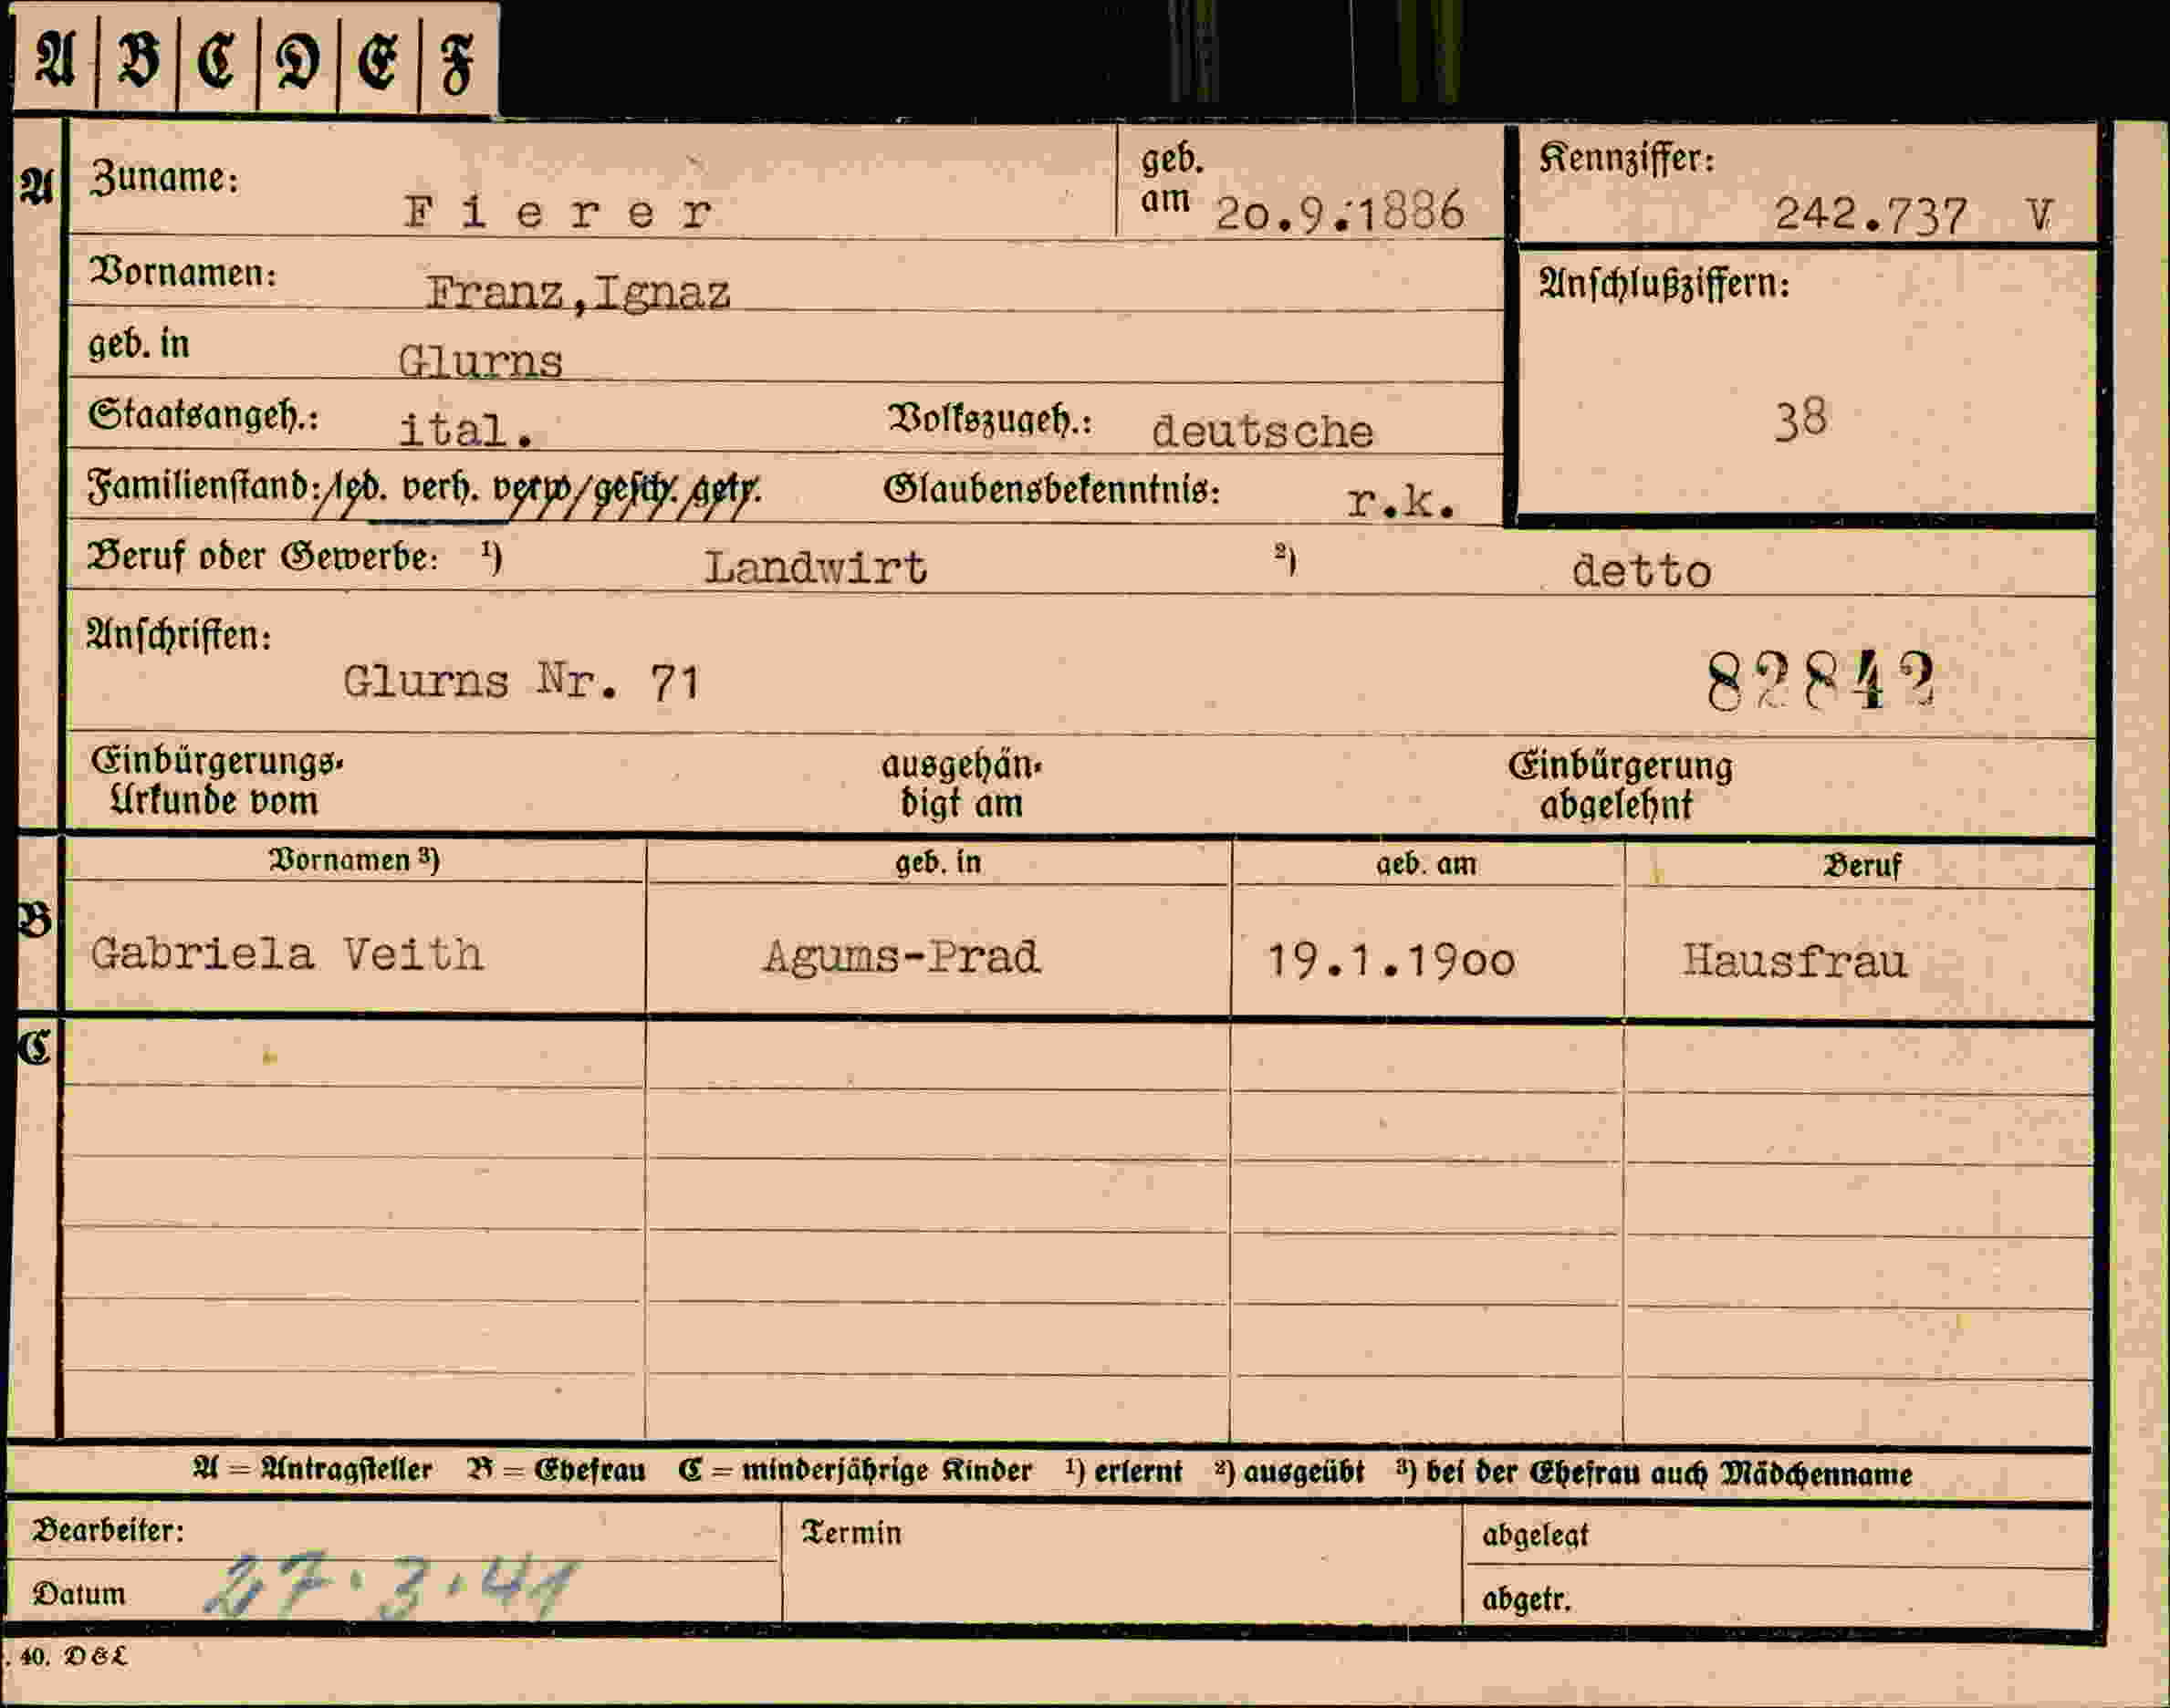 A | B | C | D | E | F
A Zuname: F i e r e r geb. am 20.9.1886 Kennziffer: 242.737 V
Vornamen: Franz,Ignaz Anschlußziffern:
geb. in Glurns
Staatsangeh.: ital. Volkszugeh.: deutsche 38
Familienstand: led. verh. verw. gesch. getr. Glaubensbekenntnis: r.k.
Beruf oder Gewerbe: ¹) Landwirt ²) detto
Anschriften:
Glurns Nr. 71 82842
Einbürgerungs- ausgehän- Einbürgerung
Urkunde vom digt am abgelehnt
Vornamen ³) geb. in geb. am Beruf
B Gabriela Veith Agums-Prad 19.1.1900 Hausfrau
C
A = Antragsteller B = Ehefrau C = minderjährige Kinder ¹) erlernt ²) ausgeübt ³) bei der Ehefrau auch Mädchenname
Bearbeiter: Termin abgelegt
Datum 27.3.41 abgetr.
. 40. D & L